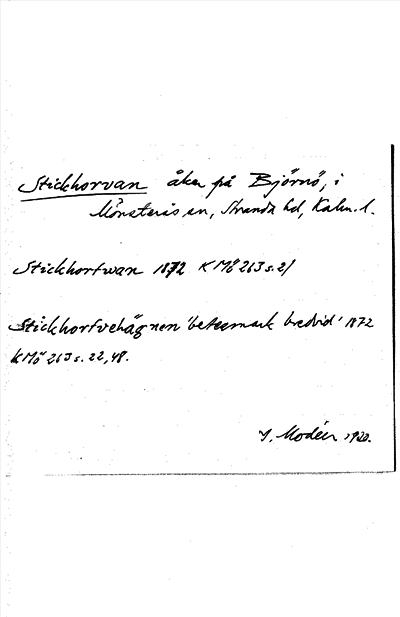 Stickhorvan åker på Björnö, i
Mönsterås sn, Stranda hd, Kalm. l.
Stickhorfwan 1872 KMö 263 s. 21
Stickhorfvehägnen 'betesmark bredvid' 1872
KMö 263 s. 22, 48.
I. Modéer 1920.